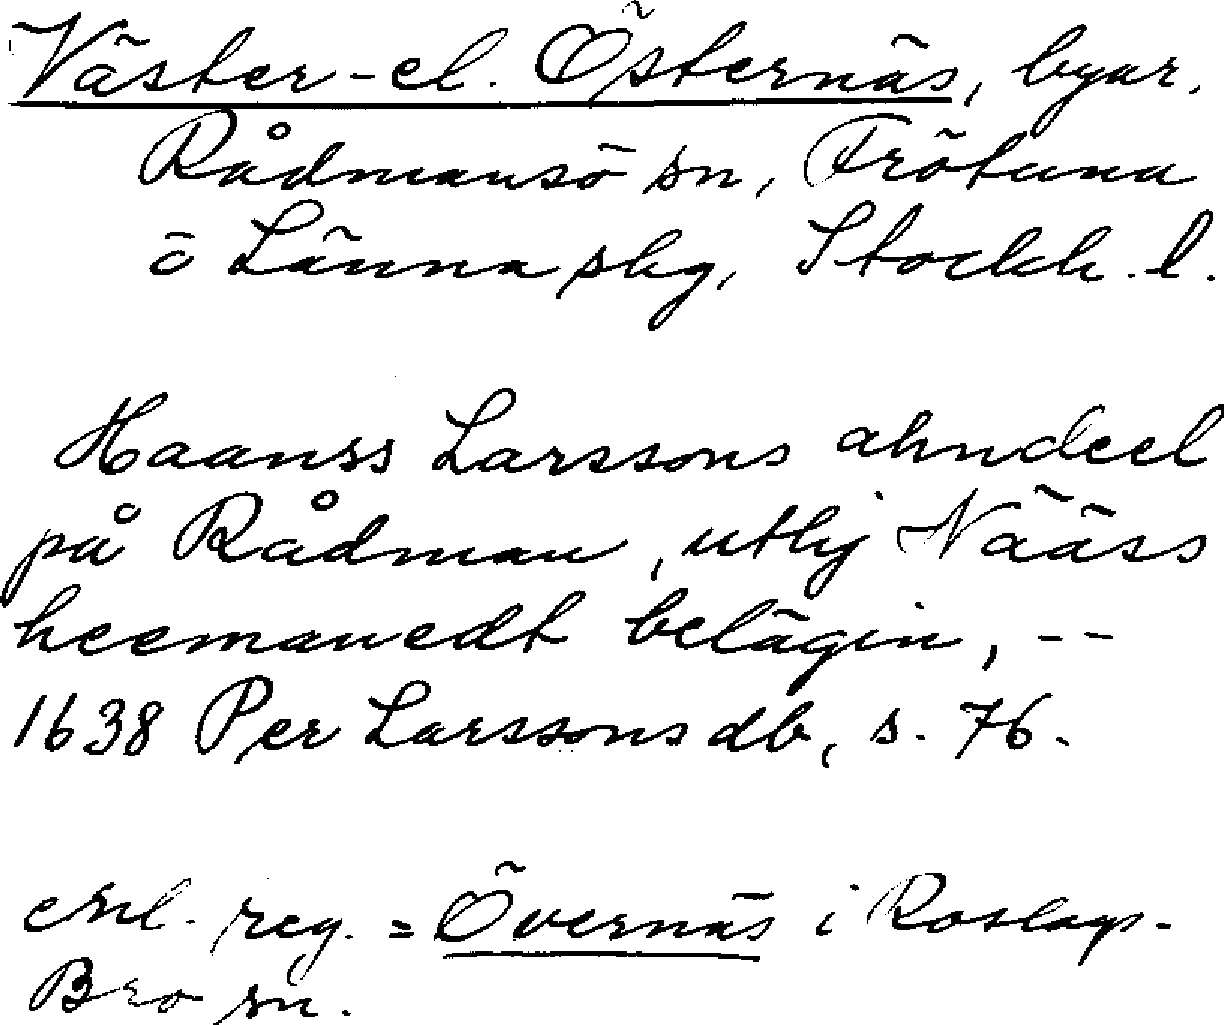 Väster- el. Östernäs, byar.
Rådmansö sn, Frötuna
o Länna skg, Stockh. l.
Haanss Larssons ahndeel
på Rådman, uthj Nääss
heemanedt belägin, --
1638 Per Larssons db, s. 76.
enl. reg. = Övernäs i Roslags-
Bro sn.